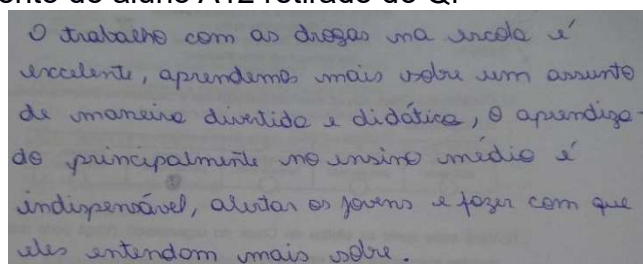 O trabalho com as drogas na escola é
excelente, aprendemos mais sobre um assunto
de maneira divertida e didática, o aprendiza-
do principalmente no ensino médio é
indispensável, alertar os jovens e fazer com que
eles entendam mais sobre.